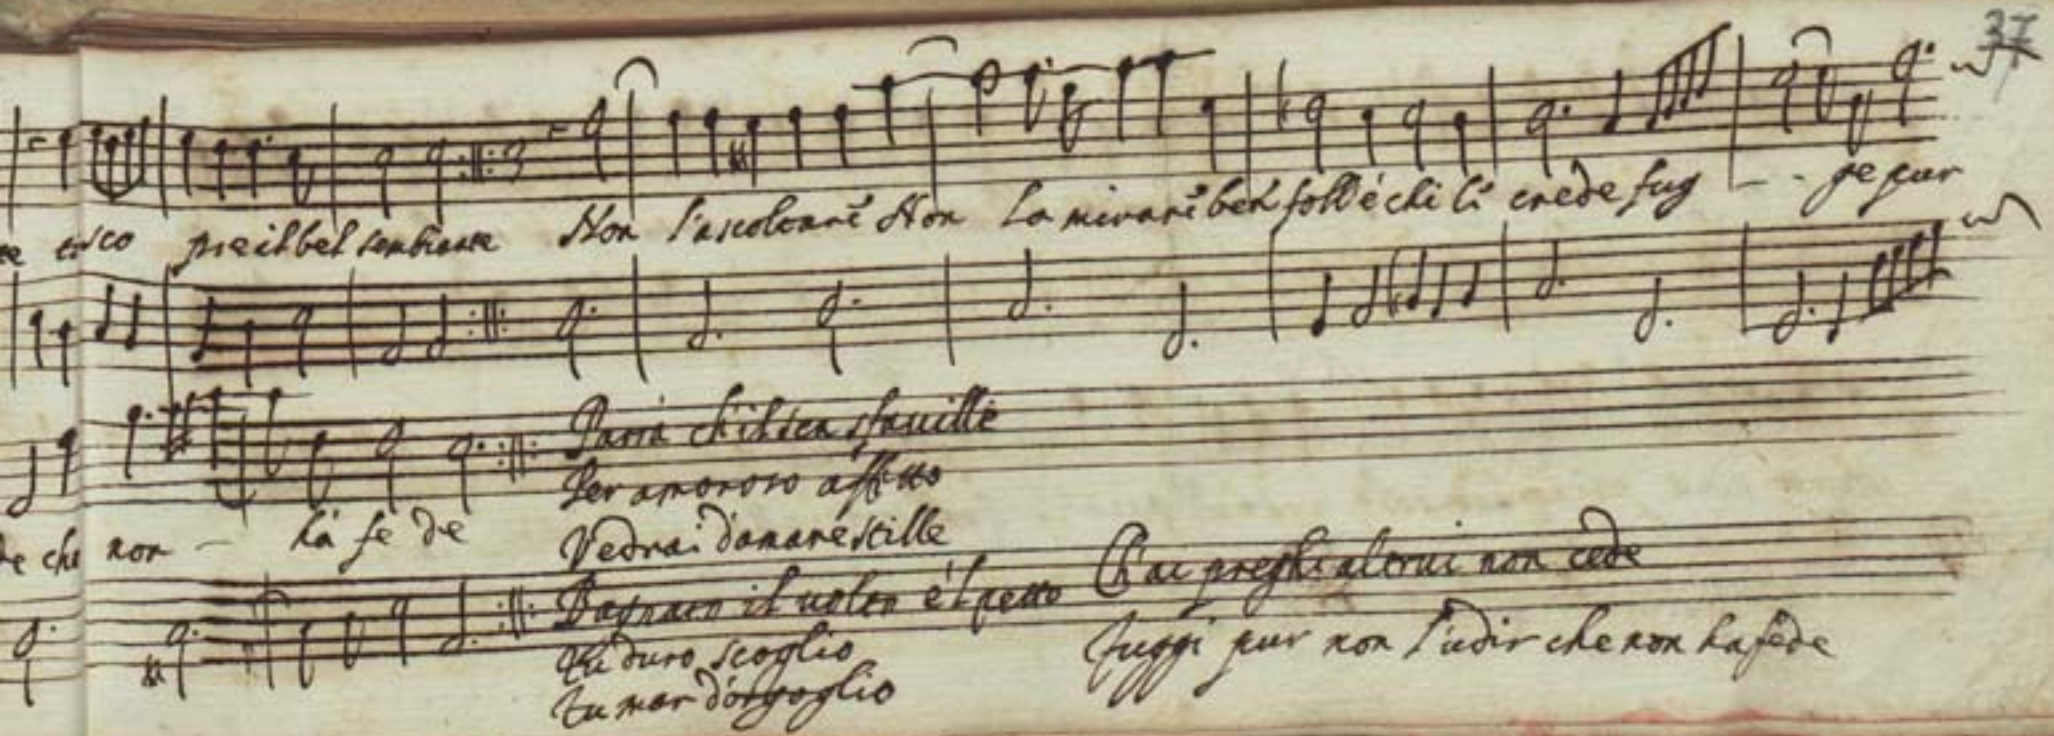 37
pre il bel sembiante Non l'ascoltare Non la mirare ben foll'è chi li crede fug - - ge pur
te che non - ha fe de
Parrà ch'il sen sfauille
Per amoroso affetto
Vedrai d'amare stille
Bagnato il uolto e'l petto
Di duro scoglio
Tu mar d'orgoglio
Ch'ai preghi altrui non cede
Fuggi pur non l'udir che non ha fede